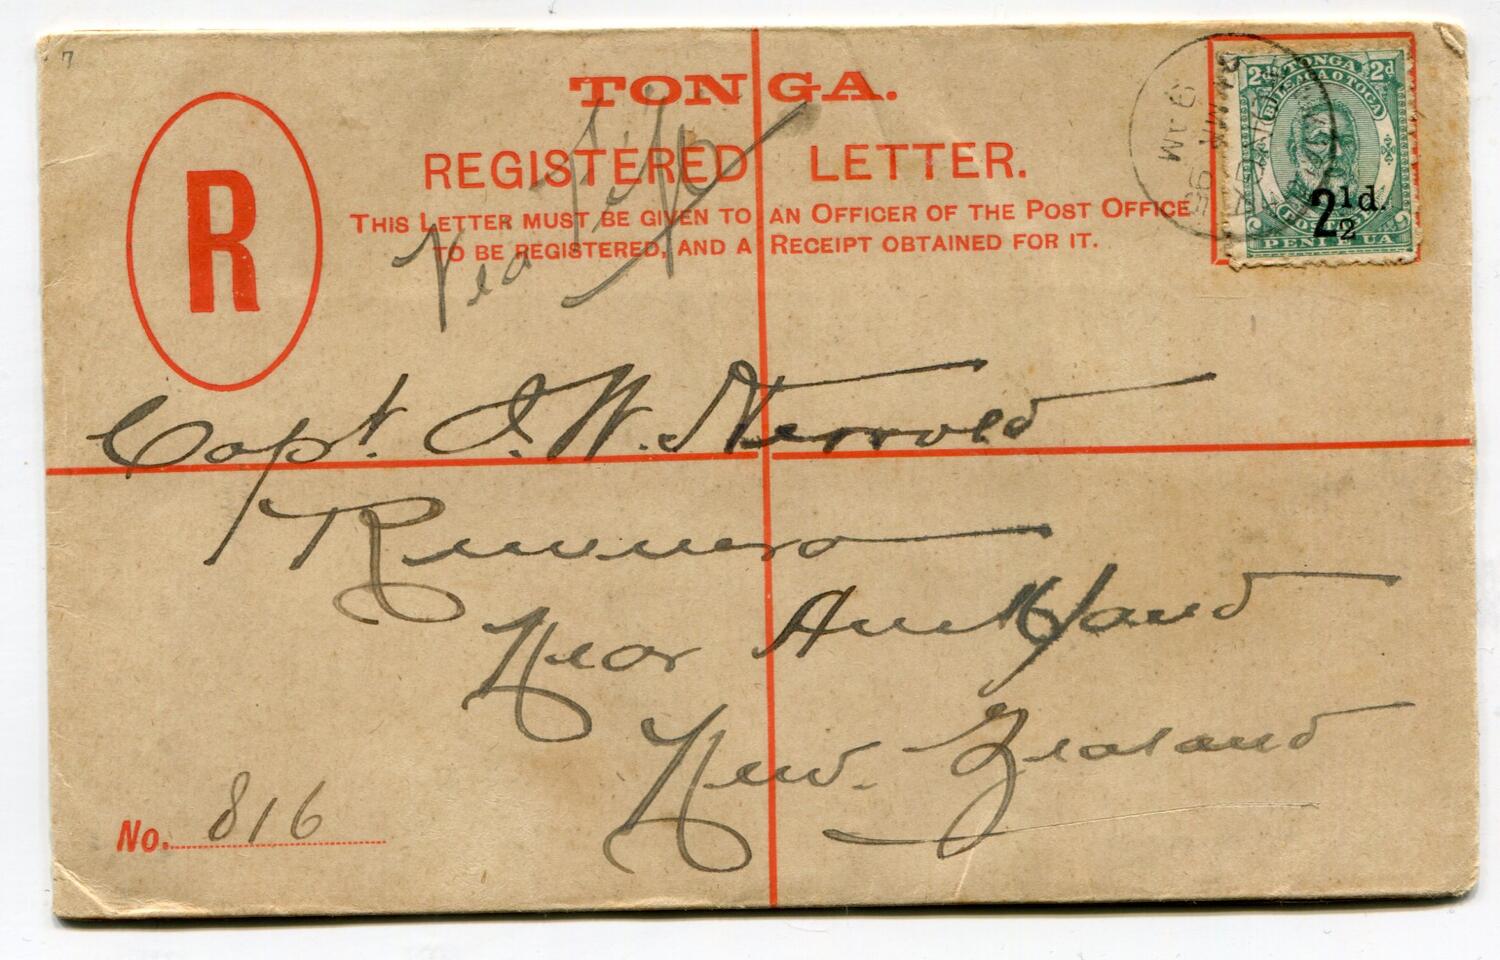 7
TONGA.
R
REGISTERED LETTER.
THIS LETTER MUST BE GIVEN TO AN OFFICER OF THE POST OFFICE
TO BE REGISTERED, AND A RECEIPT OBTAINED FOR IT.
Via Fiji
2d TONGA 2d
BULEAGA O TOGA
2½d.
PENI E UA
9 AM
Capt. J. W. Herrold
Remuera
Near Auckland
New Zealand
No. 816